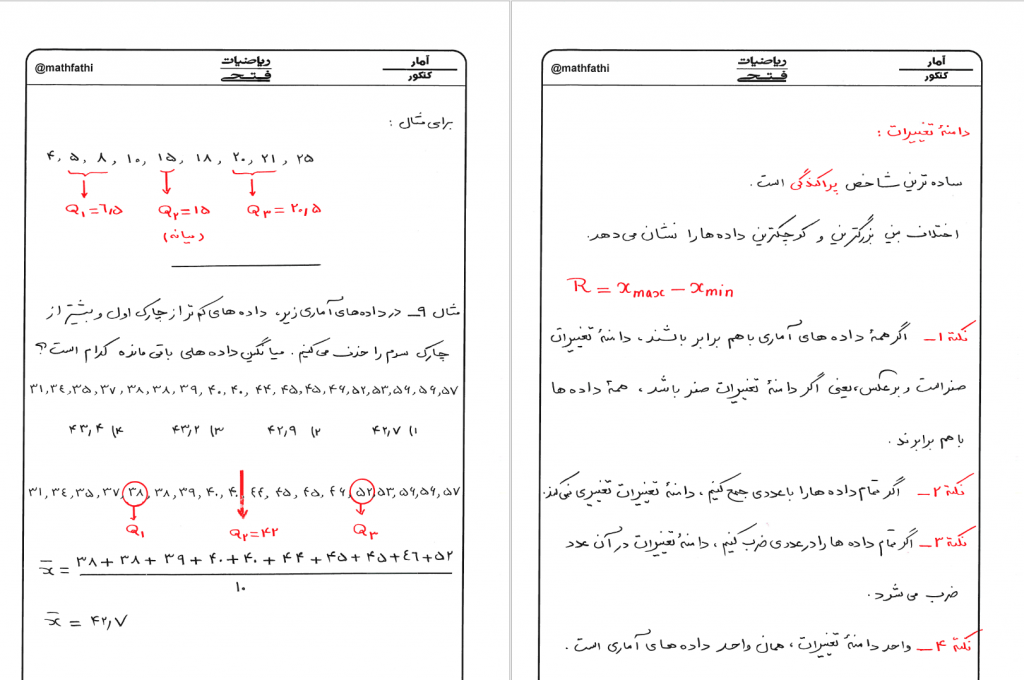 آمار
کنکور
ریاضیات
فتحی
@mathfathi
دامنهٔ تغییرات :
ساده ترین شاخص پراکندگی است .
اختلاف بین بزرگترین و کوچکترین داده ها را نشان می دهد.
R = xmax − xmin
نکتهٔ ۱_ اگر همهٔ داده های آماری با هم برابر باشند ، دامنهٔ تغییرات
صفر است و برعکس، یعنی اگر دامنهٔ تغییرات صفر باشد ، همهٔ داده ها
با هم برابرند .
نکتهٔ ۲_ اگر تمام داده ها را با عددی جمع کنیم ، دامنهٔ تغییرات تغییری نمی کند.
نکتهٔ ۳_ اگر تمام داده ها را در عددی ضرب کنیم ، دامنهٔ تغییرات در آن عدد
ضرب می شود .
نکتهٔ ۴_ واحد دامنهٔ تغییرات ، همان واحد داده های آماری است .
آمار
کنکور
ریاضیات
فتحی
@mathfathi
برای مثال :
۴, ۵, ۸, ۱۰, ۱۵, ۱۸, ۲۰, ۲۱, ۲۵
Q۱=۶,۵ Q۲=۱۵ Q۳=۲۰,۵
(میانه)
مثال ۹_ در داده های آماری زیر، داده های کم تر از چارک اول و بیشتر از
چارک سوم را حذف می کنیم . میانگین داده های باقی مانده کدام است؟
۳۱,۳۴,۳۵,۳۷,۳۸,۳۸,۳۹,۴۰,۴۰,۴۴,۴۵,۴۵,۴۶,۵۲,۵۳,۵۶,۵۶,۵۷
۱) ۴۲,۷ ۲) ۴۲,۹ ۳) ۴۳,۲ ۴) ۴۳,۴
۳۱,۳۴,۳۵,۳۷,۳۸,۳۸,۳۹,۴۰,۴۰,۴۴,۴۵,۴۵,۴۶,۵۲,۵۳,۵۶,۵۶,۵۷
Q۱ Q۲=۴۲ Q۳
x̄ = ۳۸+۳۸+۳۹+۴۰+۴۰+۴۴+۴۵+۴۵+۴۶+۵۲
۱۰
x̄ = ۴۲,۷